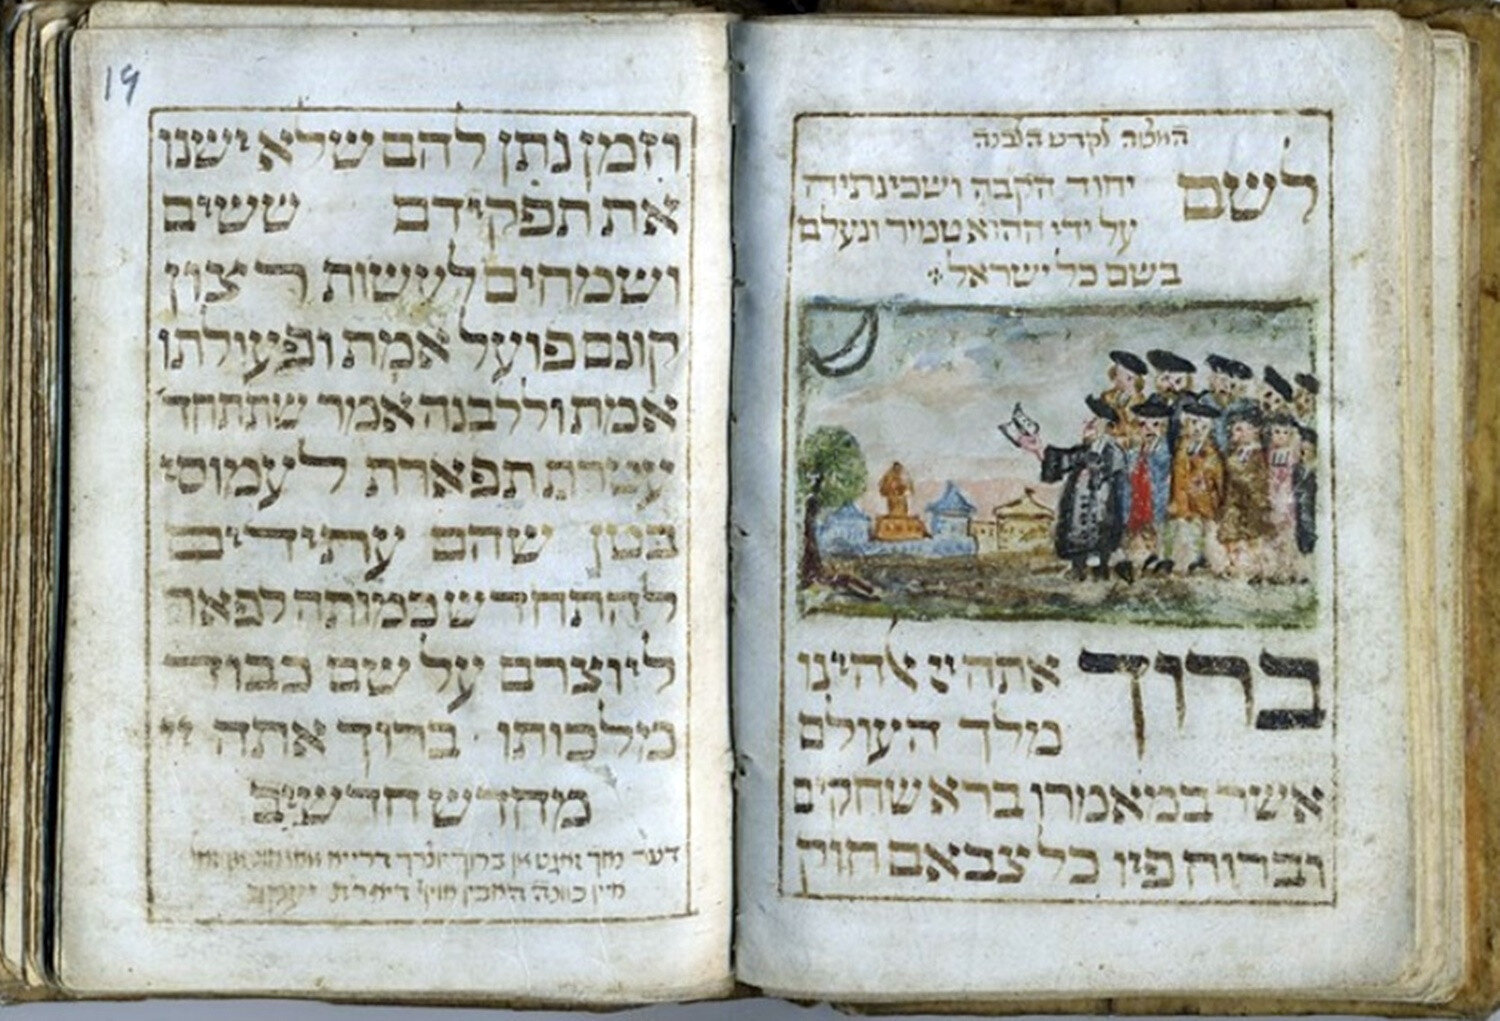 לקדש הלבנה
לשם יחוד הקבה ושכינתיה
על ידי ההוא טמיר ונעלם
בשם כל ישראל
ברוך אתה יי אלהינו
מלך העולם
אשר במאמרו ברא שחקים
וברוח פיו כל צבאם חוק
19
וזמן נתן להם שלא ישנו
את תפקידם ששים
ושמחים לעשות רצון
קונם פועל אמת ופעולתו
אמת וללבנה אמר שתתחד
עטרת תפארת לעמוסי
בטן שהם עתידים
להתחדש כמותה לפאר
ליוצרם על שם כבוד
מלכותו ברוך אתה יי
מחדש חדשים
דער נאך זאגט מן ברוך יוצרך
כוונה